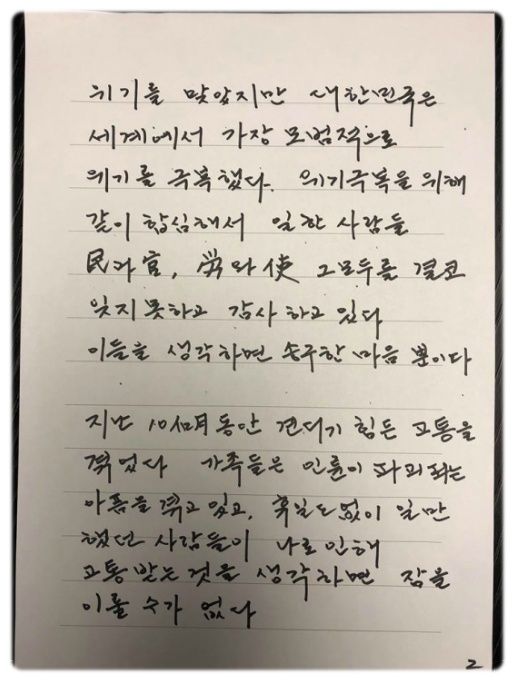 위기를 맞았지만 대한민국은
세계에서 가장 모범적으로
위기를 극복했다. 위기극복을 위해
같이 합심해서 일한 사람들
民과 官, 勞와 使 그모두를 결코
잊지못하고 감사하고 있다
이들을 생각하면 송구한 마음 뿐이다
지난 10개月동안 견디기 힘든 고통을
겪었다 가족들은 인륜이 파괴되는
아픔을 겪고 있고, 휴일도 없이 일만
했던 사람들이 나로 인해
고통받는 것을 생각하면 잠을
이룰 수가 없다
2